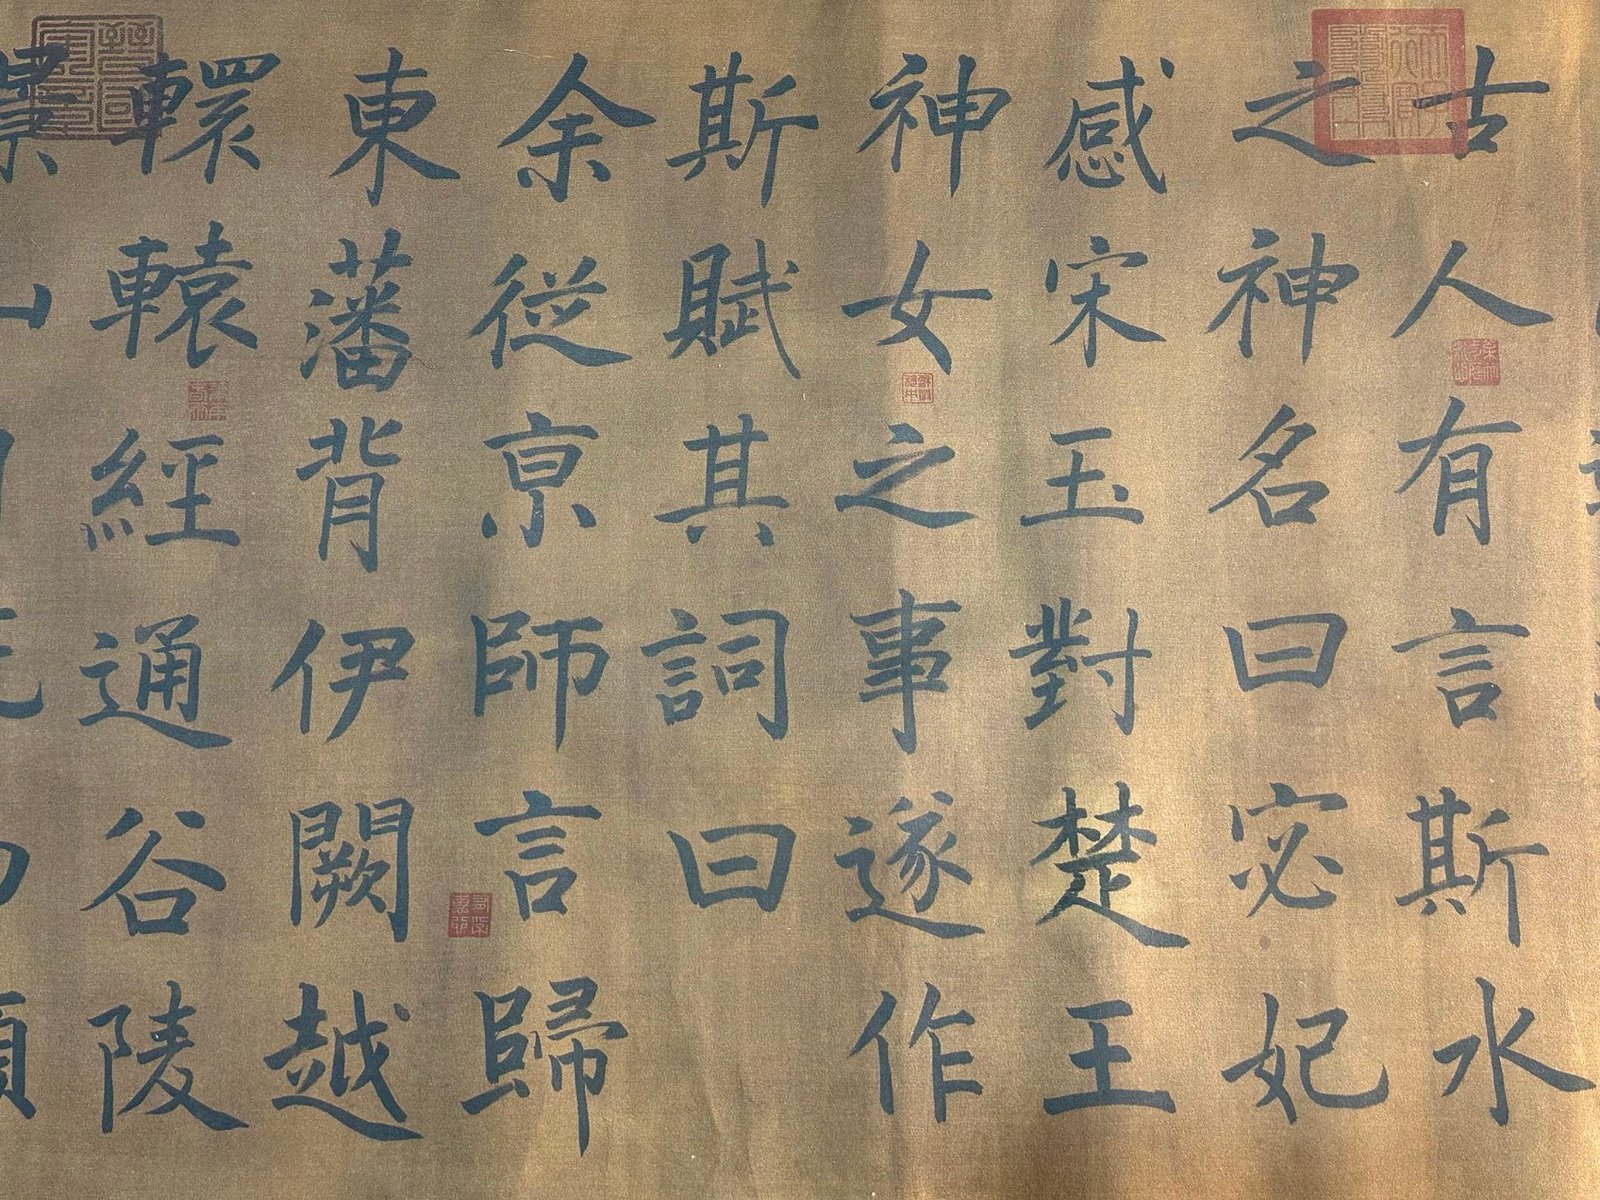 古人有言斯水
之神名曰宓妃
感宋玉對楚王
神女之事遂作
斯賦其詞曰
余從京師言歸
東藩背伊闕越
轘轅經通谷陵
景山